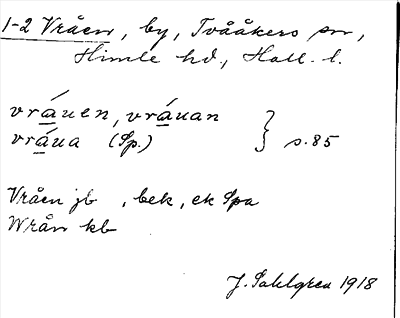 1-2 Vråen, by, Tvååkers sn,
Himle hd., Hall. l.
vráuen, vráuan
vráua (Sp.) } s. 85
Vråen jb, bek, ek Spa
Wrån kb
J. Sahlgren 1918